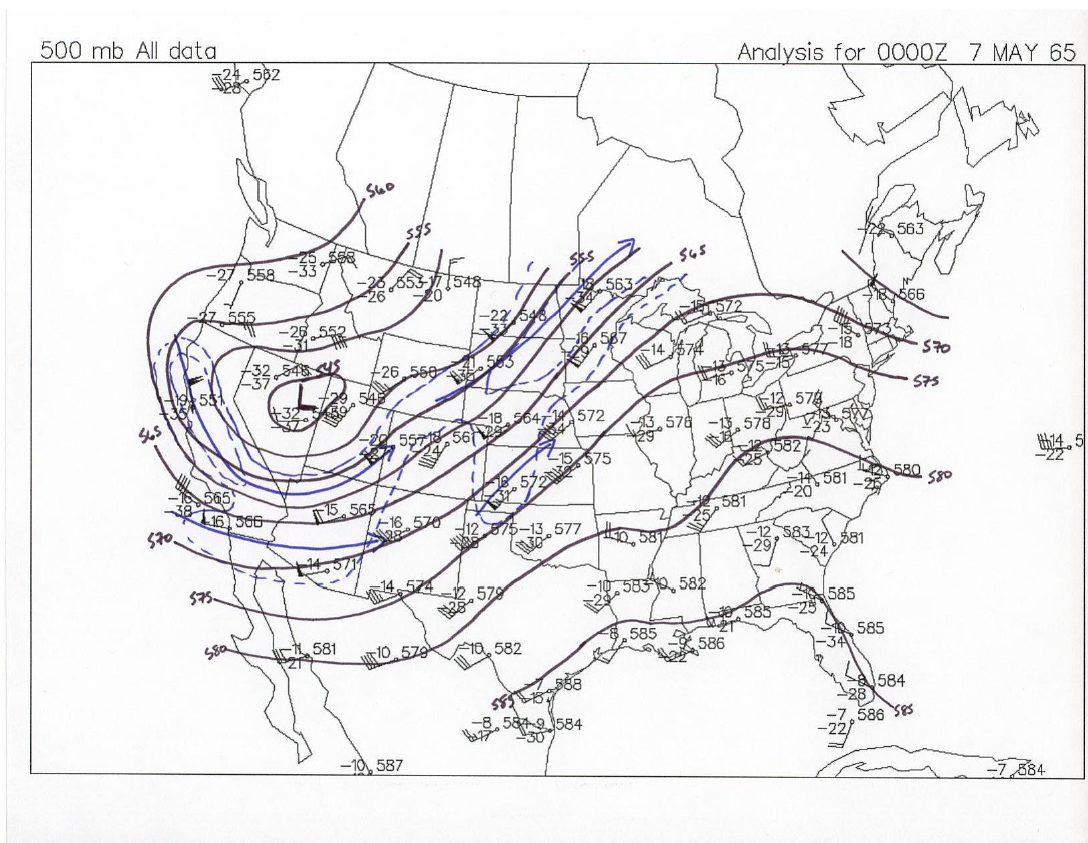 500 mb All data
Analysis for 0000Z 7 MAY 65
-24 562
-28
560
555
-22 563
-25 558
-33
-27 558
-23 553
-26
-17 548
-20
555
545
18 563
-34
-18 566
-15 572
-27 555
-26 552
-31
-22 548
-33
-15 573
-18
16 567
-14 574
-13 577
-15
570
-21 553
-35
-13 575
-16
575
-32 548
-37
545
-26 550
L
-19 551
-35
-29 545
-12 578
-29
-13 577
-23
-18 564
-29
-14 572
-13 578
-29
-13 578
-18
565
-20 557
-18 561
-24
-12 582
-25
-14 5
-22
-15 575
-32
-12 580
-25
580
-14 581
-20
-18 572
-31
-16 565
-38
-15 565
-16 566
-16 570
-28
-12 575
-13 577
-30
-10 581
-25
10 581
-12 583
-29
-12 581
-24
570
-14 571
-14 574
-12 579
-28
-10 583
-29
-10 582
575
585
-25
-10 585
-21
-10 585
-34
-8 585
-9 586
-22
580
-11 581
21
-10 579
10 582
-8 584
-28
-7 588
-15
585
585
-7 586
-22
-8 584
-17
-9 584
-30
-10 587
-7 584